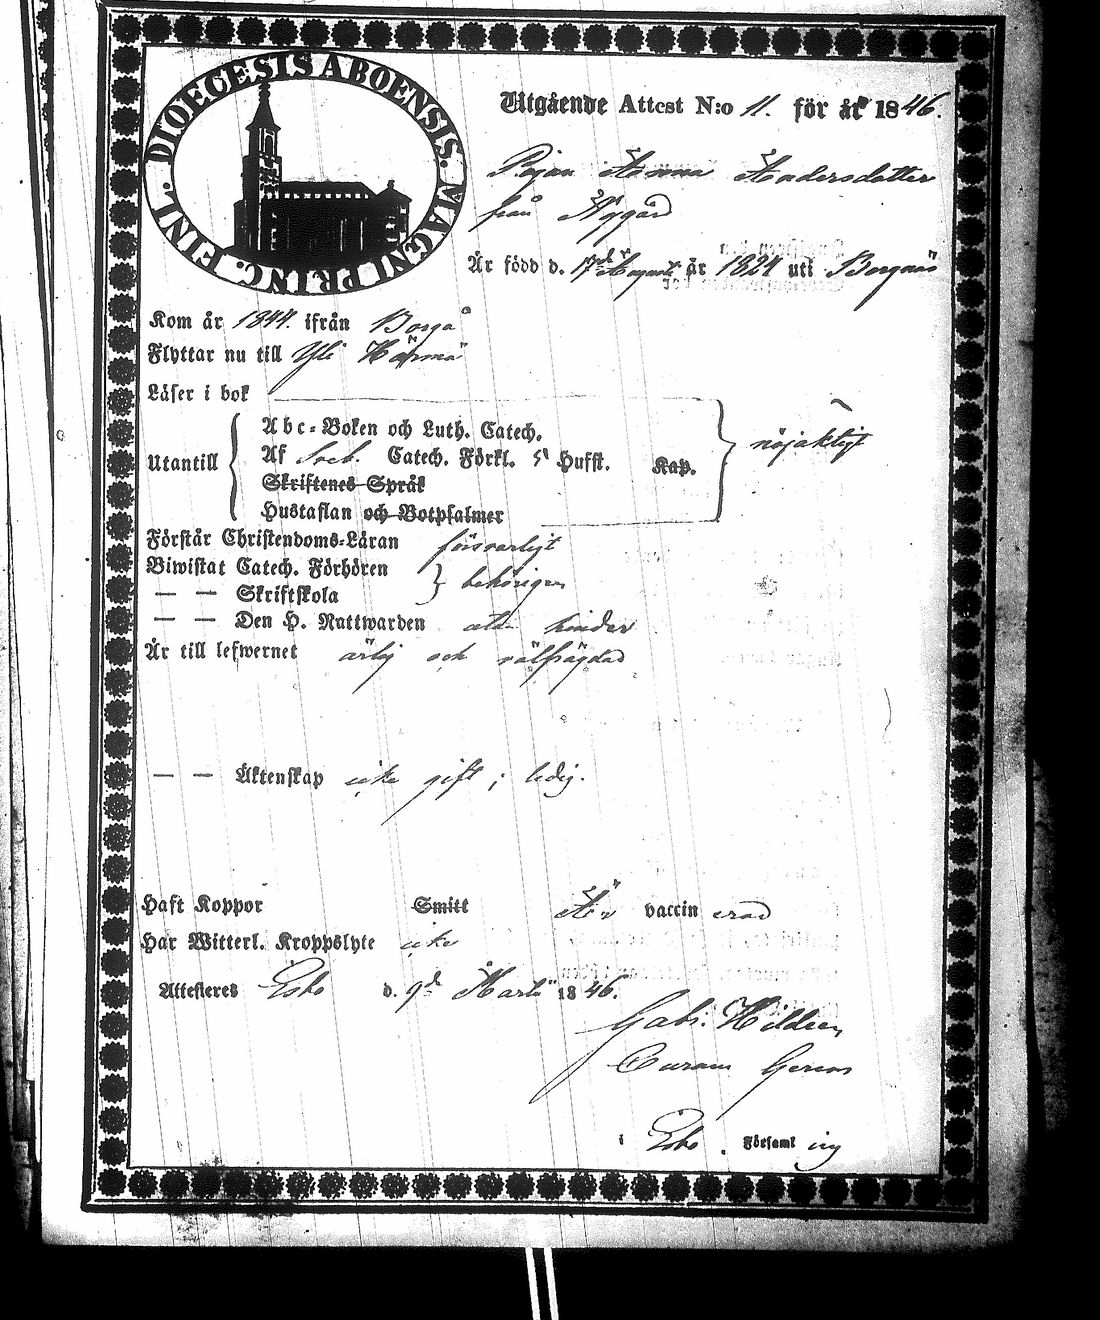 DIOECESIS ABOENSIS. MAGNI PRINC. FINL.
Utgående Attest N:o 11. för år 1846.
Pigan Anna Andersdotter
från Nygård
Är född d. 17d Augusti år 1821 uti Borgnäs
Kom år 1844. ifrån Borgå
Flyttar nu till Yli Härmä
Läser i bok
Utantill
Abc-Boken och Luth. Catech.
Af Sveb. Catech. Förkl. 5 Hufst. Kap.
nöjaktigt
Skriftenes Språk
Hustaflan och Botpsalmer
Förstår Christendoms-Läran försvarligt
Biwistat Catech. Förhören
— — Skriftskola
behörigen
— — Den H. Nattwarden utan hinder
Är till lefwernet ärlig och välfrägdad
— — Äktenskap icke gift; ledig.
Haft Koppor Smitt Är vaccinerad
Har Witterl. Kroppslyte icke
Attesteres Esbo d. 9d Martii 1846.
Gabr. Hilldeen
Curam Gerens
i Esbo. Församling